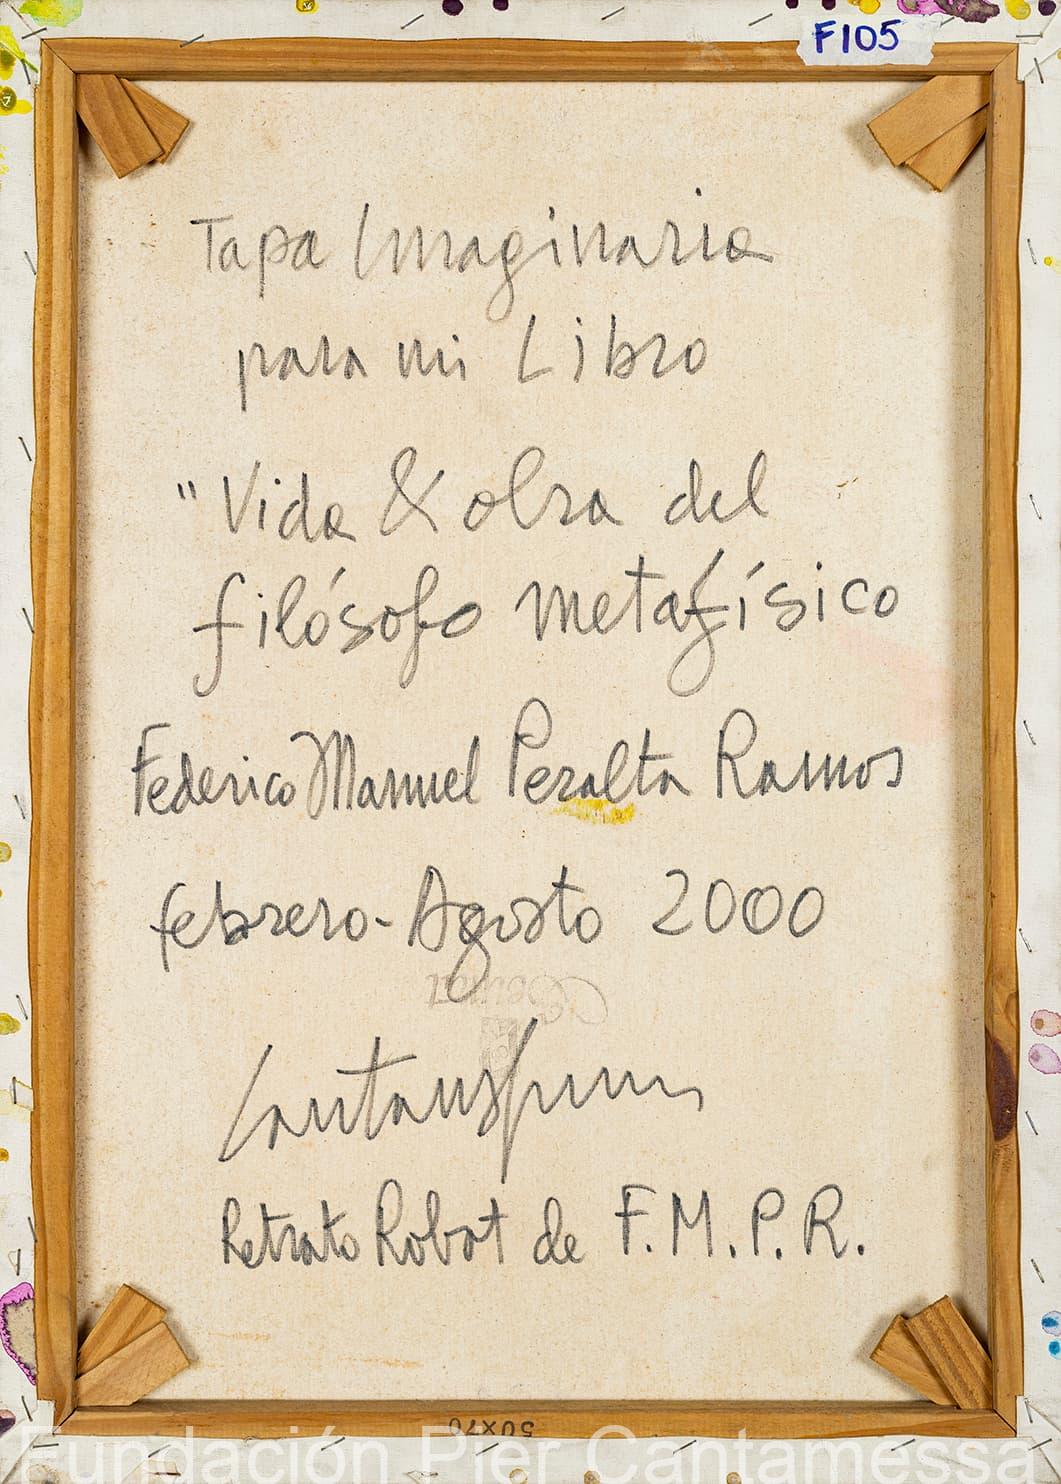 F105
Tapa Imaginaria
para mi Libro
"Vida & obra del
filósofo metafísico
Federico Manuel Peralta Ramos
febrero-Agosto 2000
Retrato Robot de F.M.P.R.
50x70
Fundación Pier Cantamessa